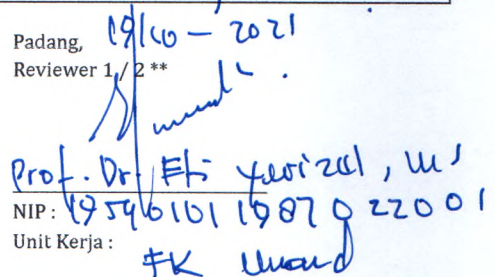 Padang, 19/10 - 2021
Reviewer 1 / 2 **
Prof. Dr. Eti Yerizel, MS
NIP : 195410101198702 2001
Unit Kerja :
FK Unand